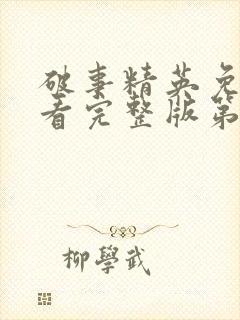 破事精英免
看完整版第
柳學武